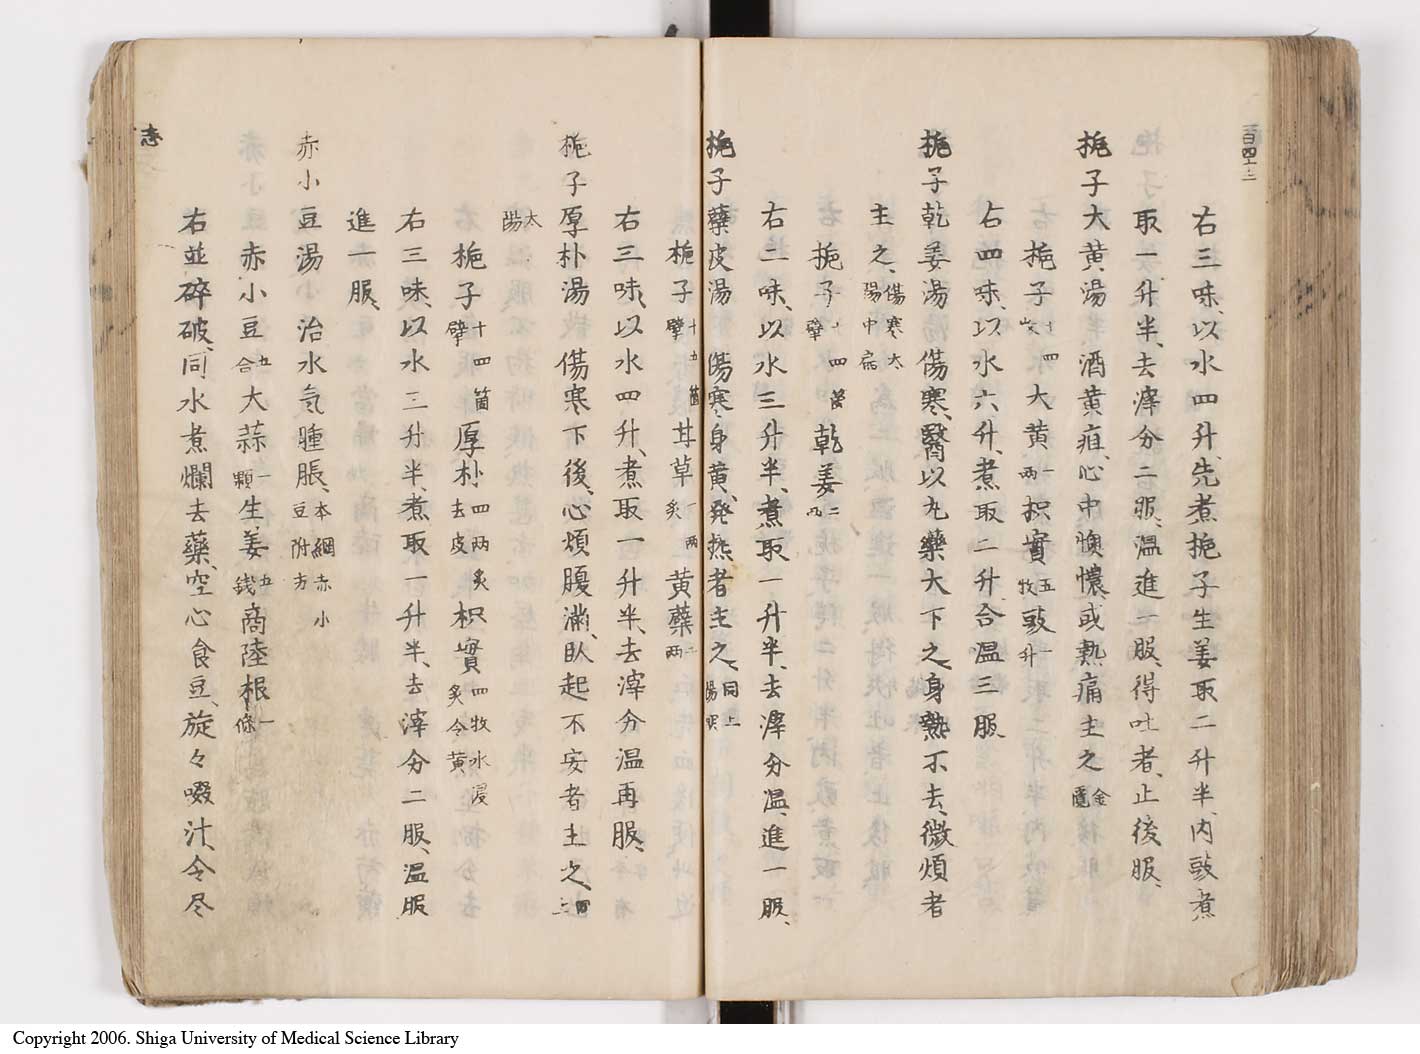 百四十三
右三味、以水四升、先煮梔子生姜取二升半、内豉煮
取一升半、去滓分二服、温進一服、得吐者、止後服、
梔子大黄湯 酒黄疸、心中懊憹或熱痛主之 金匱
梔子十四枚 大黄一両 枳實五枚 豉一升
右四味、以水六升、煮取二升、合温三服
梔子乾姜湯 傷寒、醫以丸藥大下之、身熱不去、微煩者
主之、傷寒太陽中扁
梔子十四箇擘 乾姜二両
右二味、以水三升半、煮取一升半、去滓分温、進一服、
梔子蘗皮湯 傷寒身黄、発热者主之、同上陽明
梔子十五箇擘 甘草一両炙 黄蘗二両
右三味、以水四升、煮取一升半、去滓分温再服、
梔子厚朴湯 傷寒下後、心煩腹滿、臥起不安者主之、同上
太陽
梔子十四箇擘 厚朴四両炙去皮 枳實四牧水浸炙令黄
右三味、以水三升半、煮取一升半、去滓分二服、温服
進一服、
赤小豆湯 治水気腫脹、本綱赤小豆附方
赤小豆五合 大蒜一顆 生姜五銭 商陸根一條
右並碎破、同水煮爛去藥、空心食豆、旋々啜汁、令尽